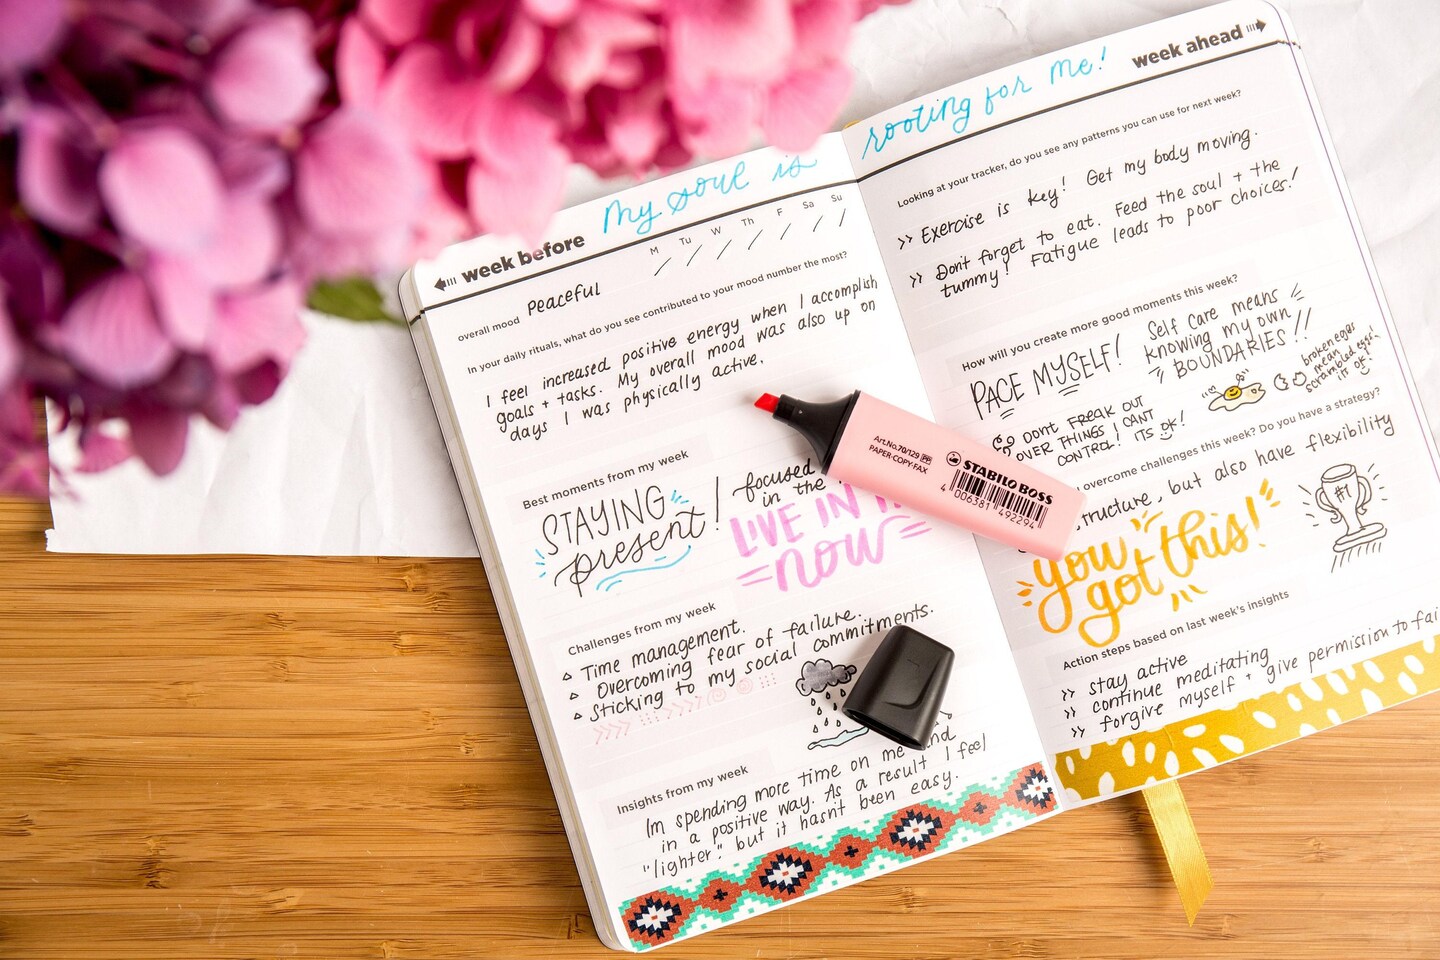 My soul is
week before
M Tu W Th F Sa Su
overall mood peaceful
In your daily rituals, what do you see contributed to your mood number the most?
I feel increased positive energy when I accomplish
goals + tasks. My overall mood was also up on
days I was physically active.
Best moments from my week
STAYING
present!
focused
in the
LIVE IN
now
Challenges from my week
Time management.
Overcoming fear of failure.
Sticking to my social commitments.
Insights from my week
Im spending more time on me and
in a positive way. As a result I feel
"lighter." but it hasnt been easy.
rooting for me!
week ahead
Looking at your tracker, do you see any patterns you can use for next week?
>> Exercise is key! Get my body moving.
>> Dont forget to eat. Feed the soul + the
tummy! Fatigue leads to poor choices!
How will you create more good moments this week?
PACE MYSELF!
Self care means
knowing my own
BOUNDARIES!!
broken eggs
mean
scrambled eggs!
its ok!
DONT FREAK OUT
OVER THINGS I CANT
CONTROL! ITS ok!
overcome challenges this week? Do you have a strategy?
structure, but also have flexibility
you
got this!
#1
Action steps based on last week's insights
>> stay active
>> continue meditating
>> forgive myself + give permission to fail
Art.No.70/129
PAPER-COPY-FAX
STABILO BOSS
4 006381 492294